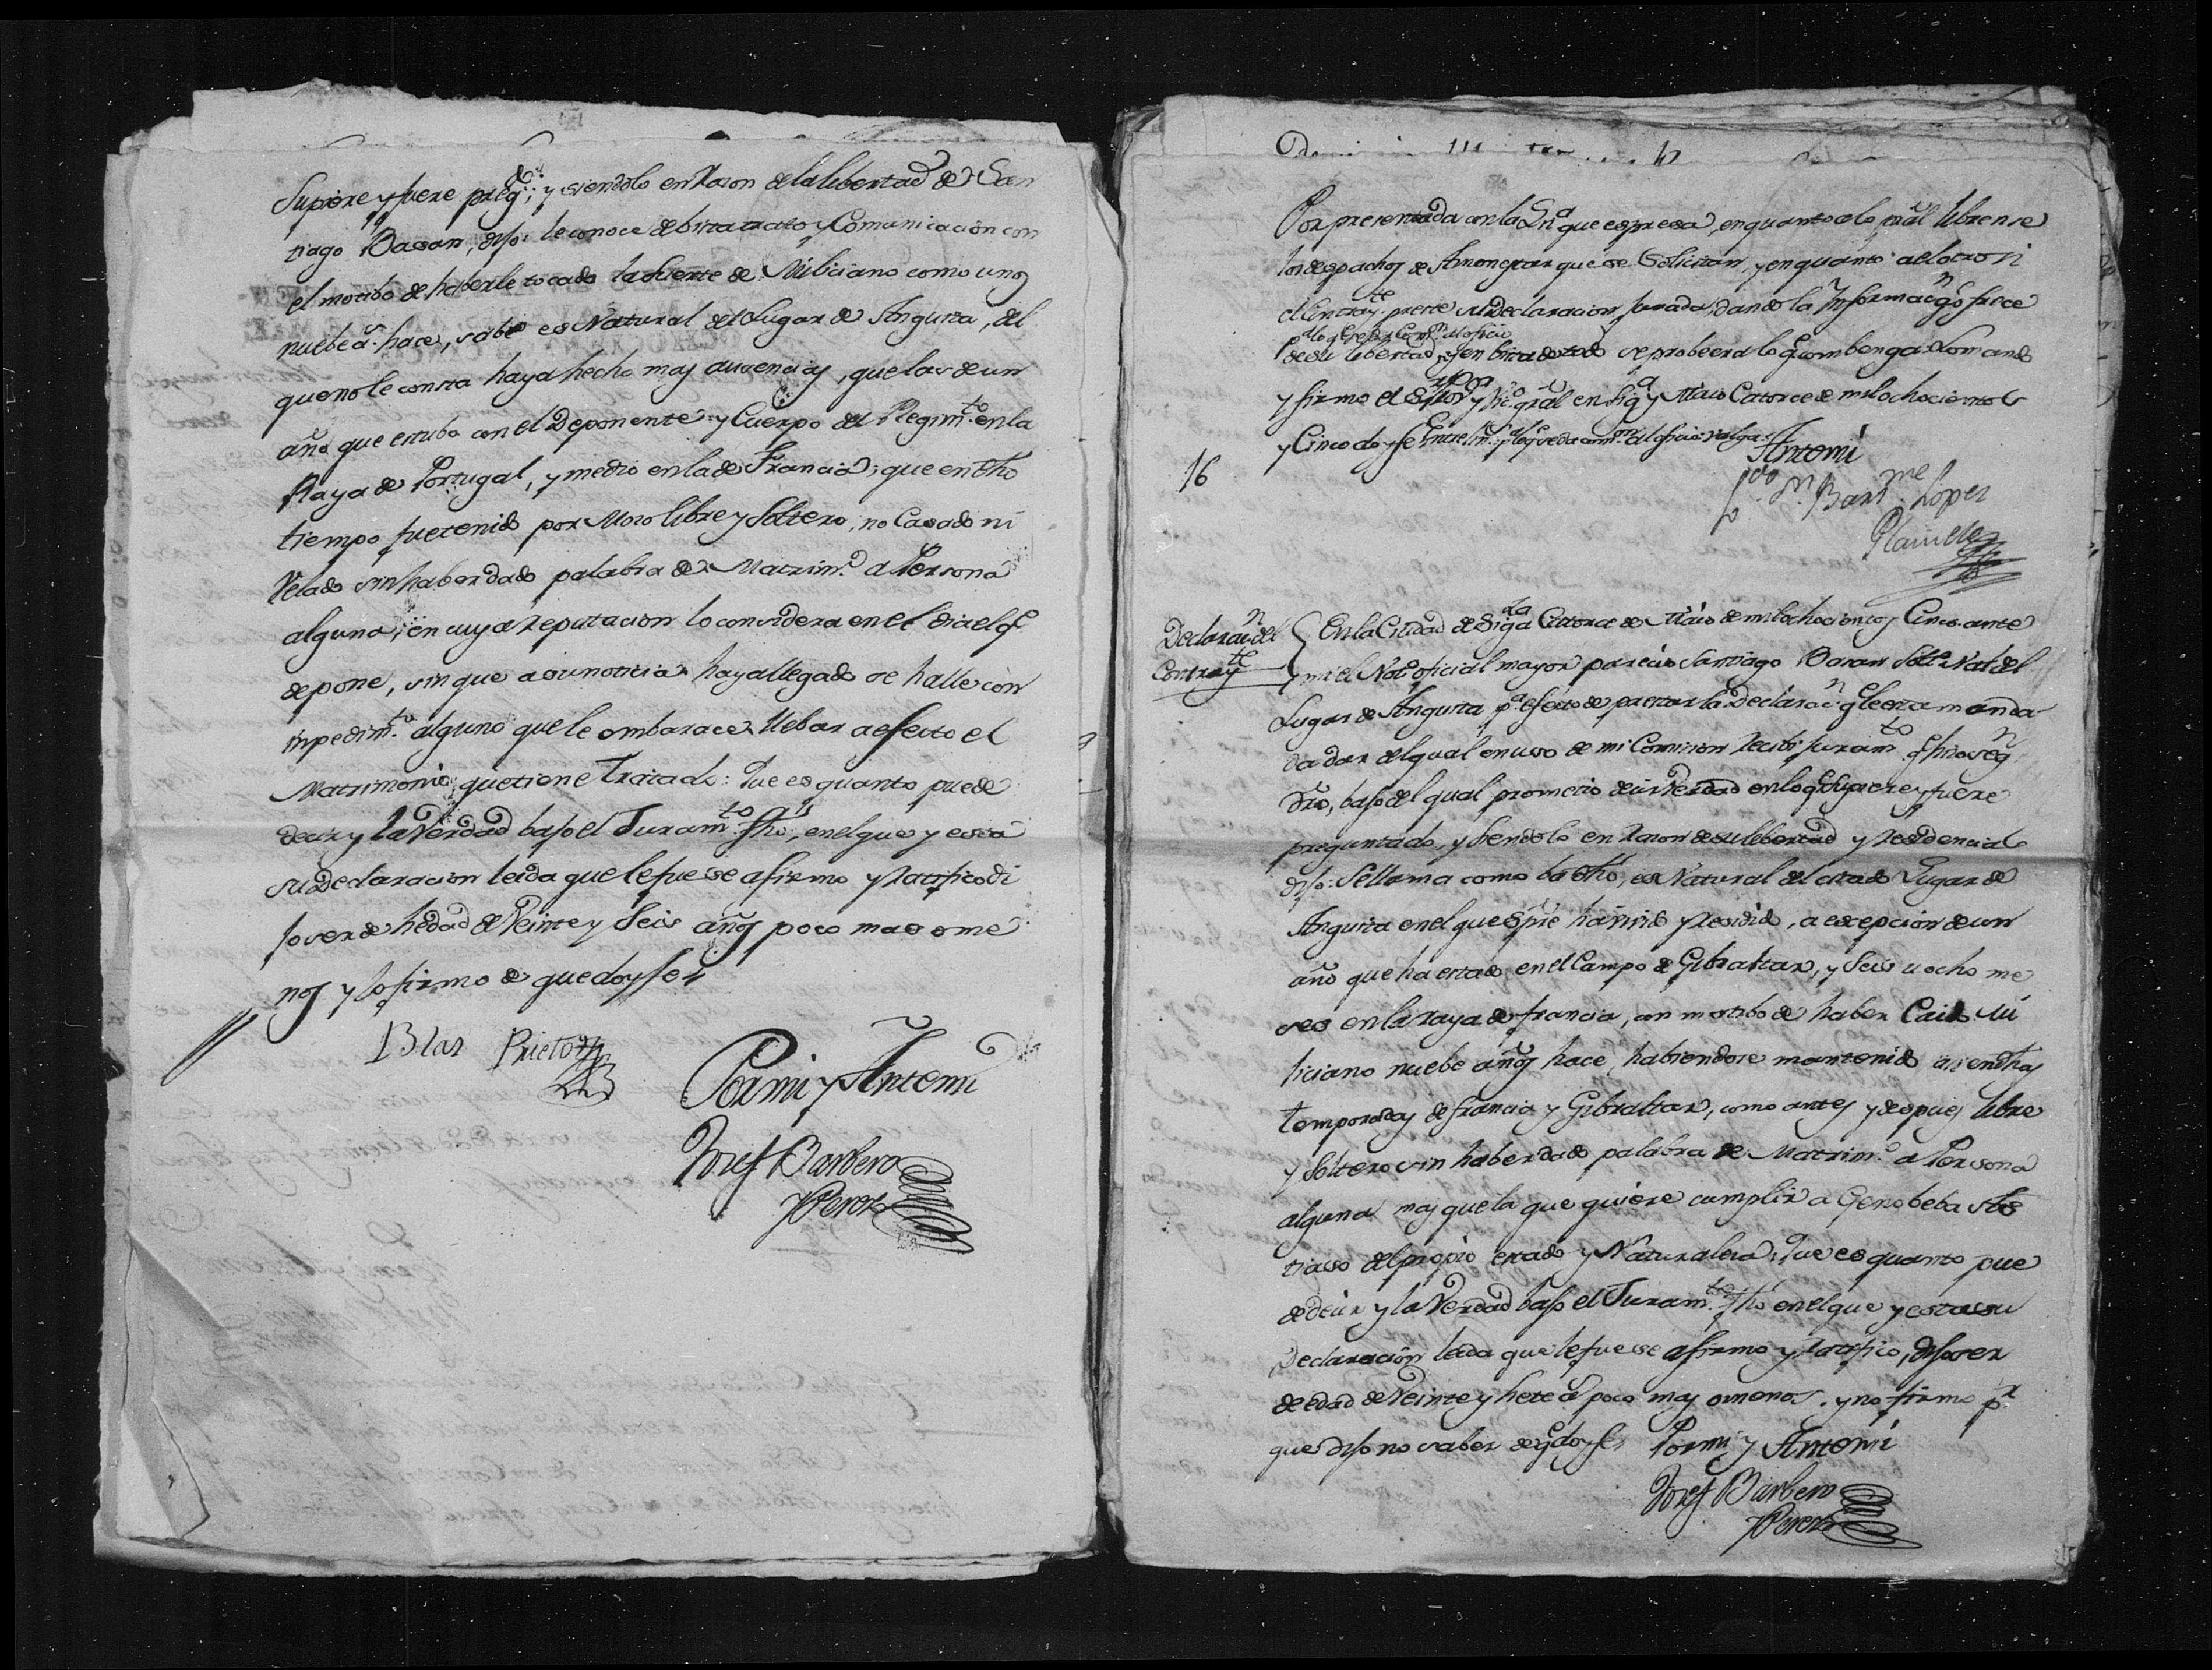 Supiere y fuere preg.do; y siendolo en Razon de la libertad de San
tiago Basan, dijo: le conoce de bista trato y Comunicacion con
el motibo de haberle tocado la Suerte de Miliciano como unos
nuebe a.s hace, sabe es Natural del Lugar de Anguita, del
que no le consta haya hecho mas ausencias, que las de un
año que estubo con el Deponente y Cuerpo del Regim.to en la
Raya de Portugal, y medio en la de Francia; que en dho
tiempo fue tenido por Mozo libre y Soltero, no Casado ni
Velado sin haber dado palabra de Matrim.o a Persona
alguna; en cuya reputacion lo considera en el dia el q.e
depone, sin que a su noticia haya llegado se halle con
impedim.to alguno que le embarace llebar a efecto el
Matrimonio que tiene Tratado: Que es quanto puede
decir y la Verdad bajo el Juram.to fho, en el que y en esta
su Declaracion leida que le fue se afirmo y ratifico di
jo ser de hedad de Veinte y Seis años poco mas o me
nos y lo firmo de que doy fe
Blas Prieto
Por mi y Antemi
Josef Barbero
y Perez
Por presentada con la Li.a que espresa, en quanto a lo pral librense
los despachos de Amonestar que se Solicitan, y en quanto al otro si
el Contray.te preste su Declaracion jurada, dando la Informac.n q.e ofrece
de su libertad, y en bista de todo se probeera lo q.e combenga: Lo mando
y firmo el Señor Vic.o gral en Sig.a y Maio Catorce de mil ochocientos
y Cinco doy fe
Antemi
16
Bar.me Lopez
Declarac.n del
Contray.te
En la Ciudad de Sig.za a Catorce de Maio de mil ochocientos Cinco ante
mi el Not.o oficial mayor parecio Santiago Basan Solt.o Nat.l del
Lugar de Anguita p.a efecto de prestar la Declarac.n q.e le esta manda
da dar del qual en uso de mi Comision Recibi juram.to q.e hizo seg.n
dro, bajo del qual prometio decir Verdad en lo q.e Supiere y fuere
preguntado, y siendolo en Razon de su libertad y residencia
dijo: Se llama como ba dho, es Natural del citado Lugar de
Anguita en el que Spre ha vivido y residido, a escepcion de un
año que ha estado en el Campo de Gibraltar, y Seis u ocho me
ses en la raya de francia, con motibo de haber Caido Mi
liciano nuebe años hace, habiendose mantenido asi en dhas
temporadas de francia y Gibraltar, como antes y despues libre
y Soltero sin haber dado palabra de Matrim.o a Persona
alguna mas que la que quiere cumplir a Genobeba
del propio estado y Naturaleza; Que es quanto pue
de decir y la Verdad bajo el Juram.to fho en el que y esta su
Declaracion leida que le fue se afirmo y ratifico, dijo ser
de edad de Veinte y Siete a.s poco mas o menos. y no firmo p.r
que dijo no saber de q.e doy fe
Por mi y Antemi
Josef Barbero
y Perez